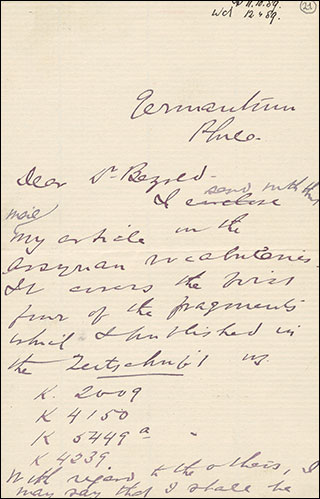 11.10.89.
12 4 89.
21
Germantown
Phila.
Dear Dr Bezold.
send with this
I enclose
mail
My article on the
Assyrian vocabularies.
It covers the first
four of the fragments
which I published in
the Zeitschrift
K. 2009
K 4150
K 5449 a
K 4239
With regard to the others, I
may say that I shall be